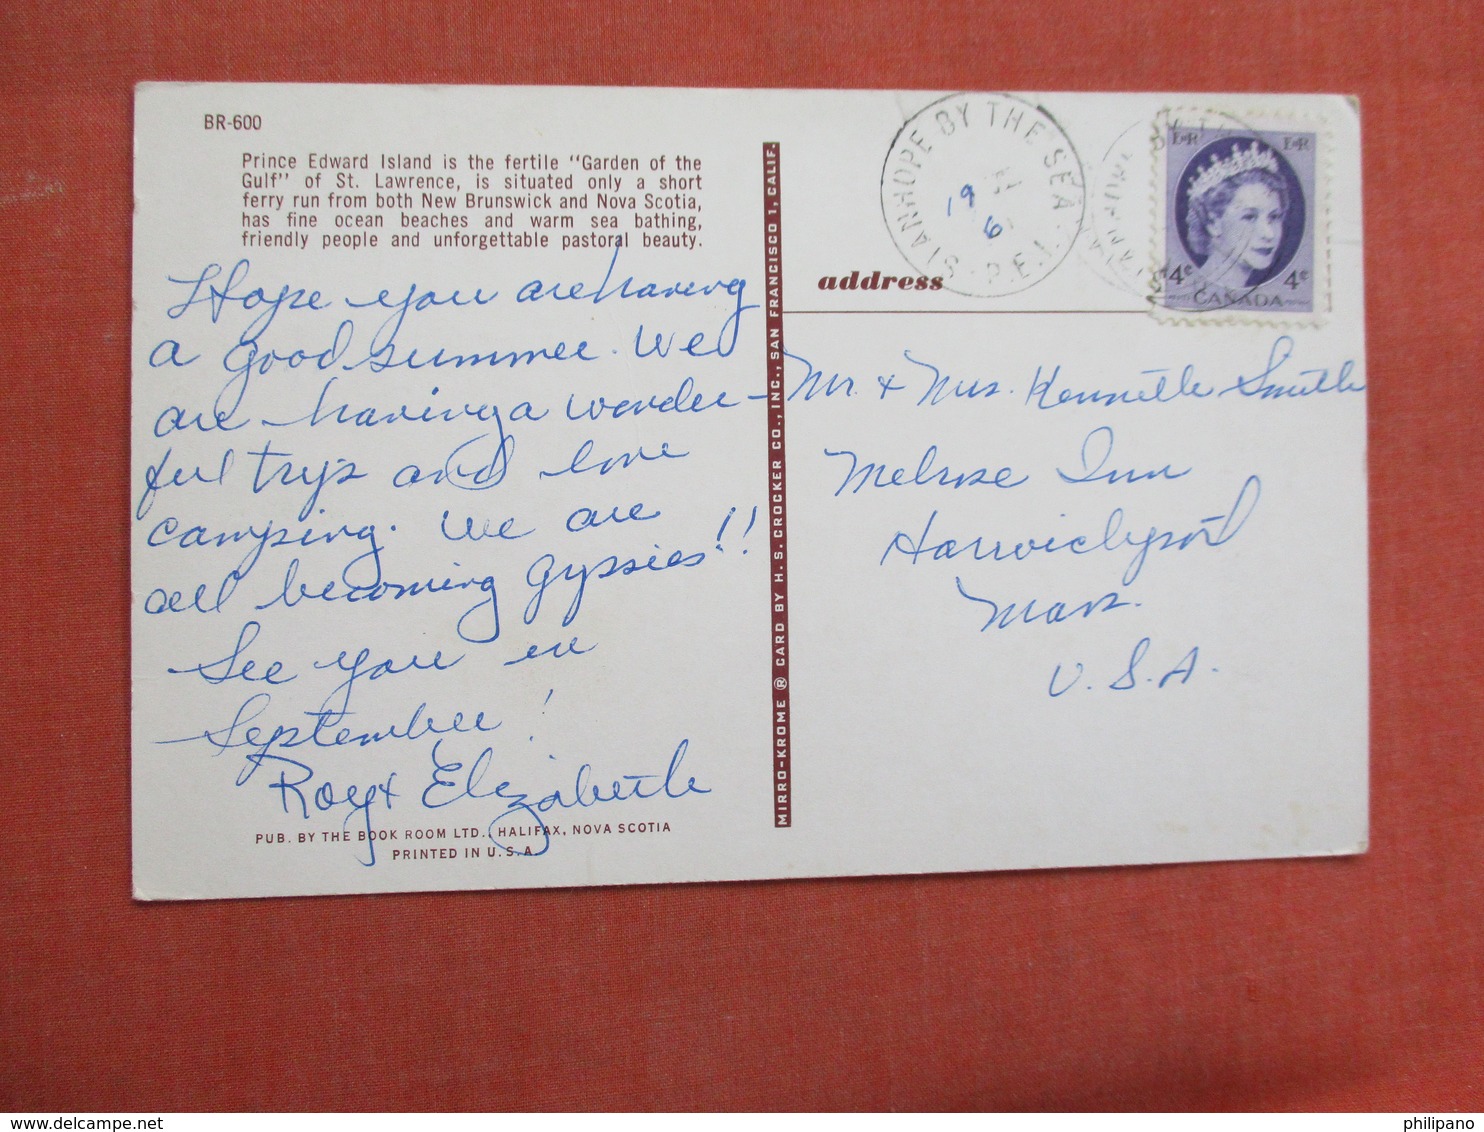 BR-600
Prince Edward Island is the fertile "Garden of the
Gulf" of St. Lawrence, is situated only a short
ferry run from both New Brunswick and Nova Scotia,
has fine ocean beaches and warm sea bathing,
friendly people and unforgettable pastoral beauty.
Hope you are having
a good summer. We
are having a wonder-
ful trip and love
camping. We are
all becoming gypsies!!
See you in
September!
Roy & Elizabeth
PUB. BY THE BOOK ROOM LTD., HALIFAX, NOVA SCOTIA
PRINTED IN U.S.A.
MIRRO-KROME ® CARD BY H. S. CROCKER CO., INC., SAN FRANCISCO 1, CALIF.
STANHOPE BY THE SEA
P.E.I.
19
6
E R E R
4¢ 4¢
CANADA
address
Mr. & Mrs. Kenneth Smith
Melrose Inn
Harwichport
Mass.
U.S.A.
http://eshop72.delcampe.net
philipano